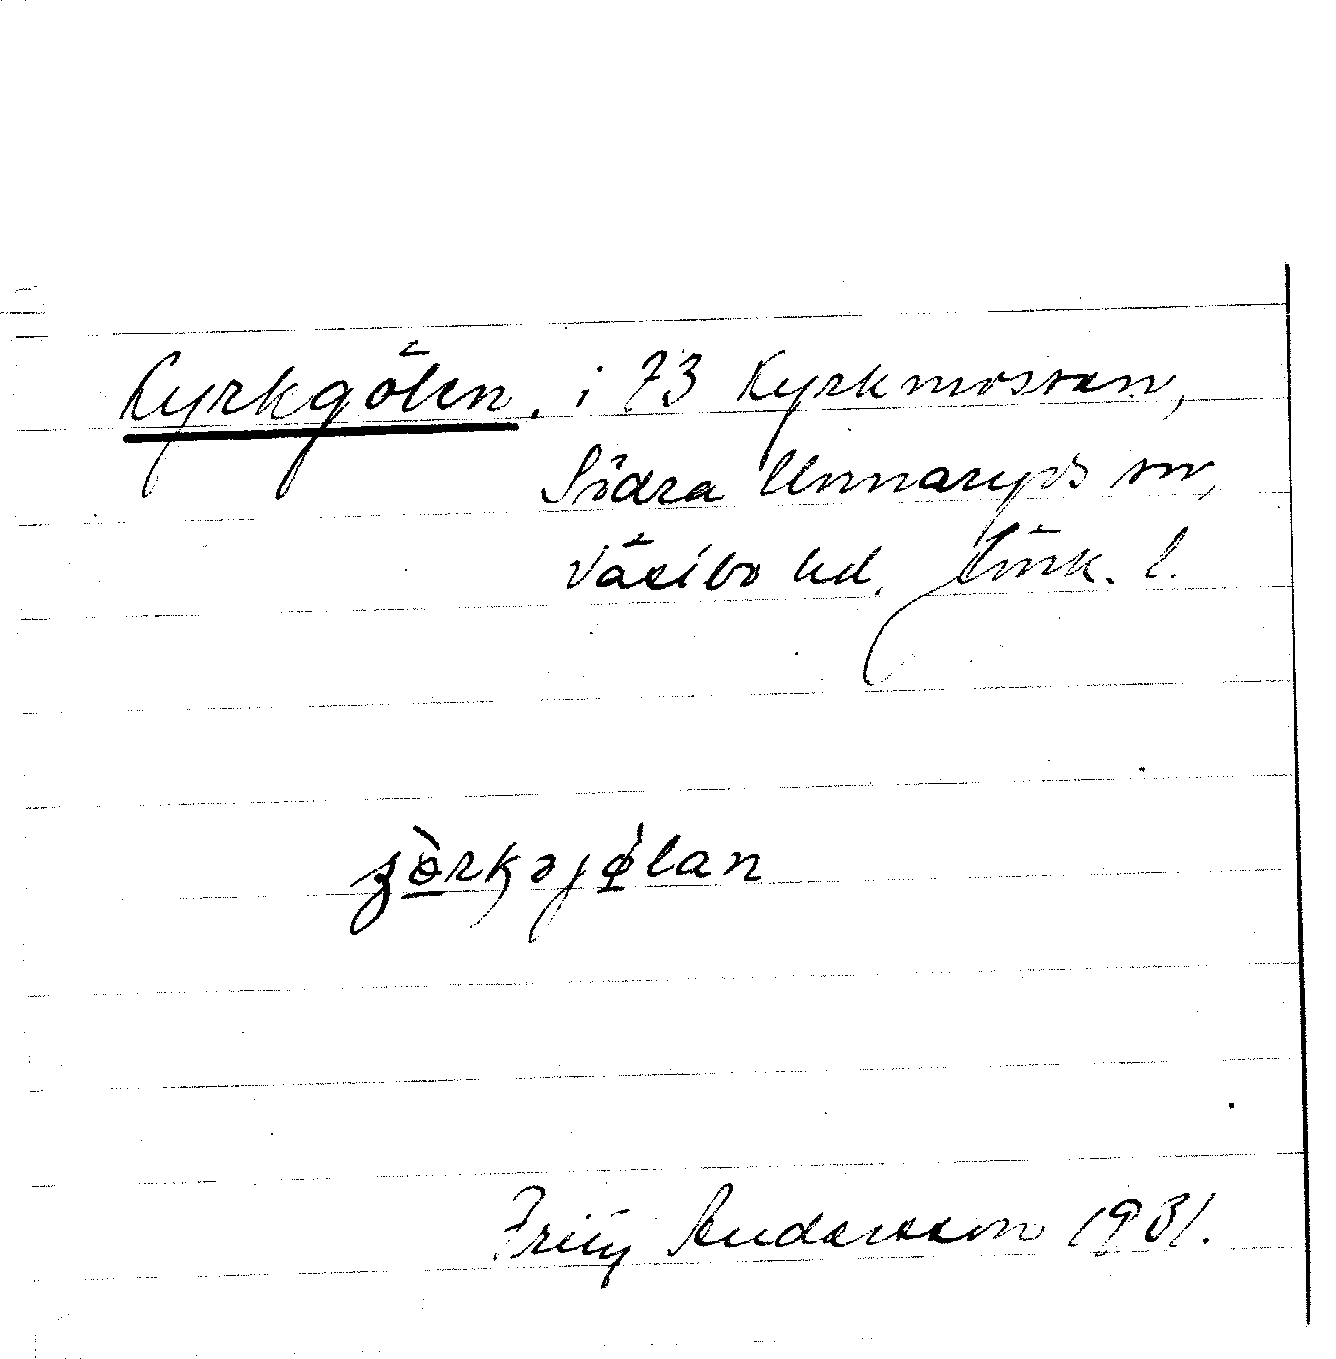 Kyrkgölen. i 73 Kyrkmossen,
Södra Unnaryds sn,
Västbo hd. Jönk. l.
Andersson 1931.